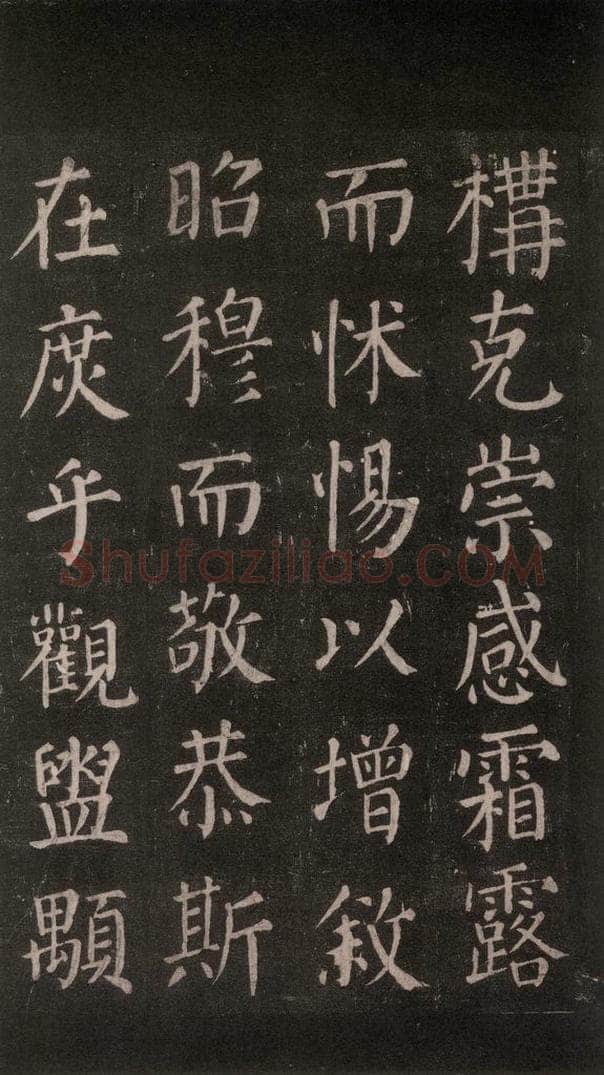 構克崇感霜露
而怵惕以增敘
昭穆而敬恭斯
在庶乎觀盥顒
Shufaziliao.COM